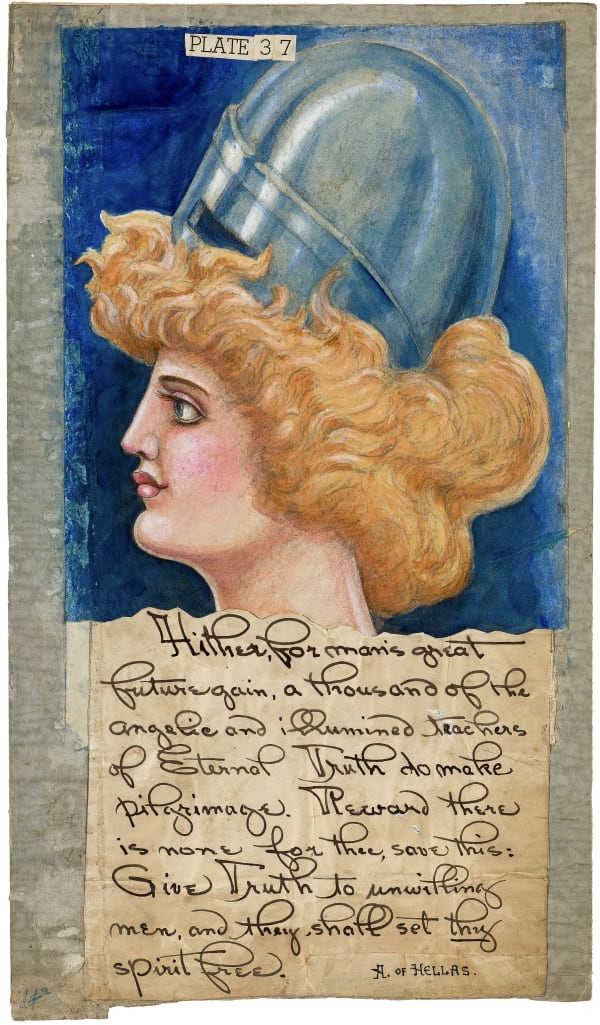 PLATE 37
Hither, for man's great
future gain, a thousand of the
angelic and illumined teachers
of Eternal Truth do make
pilgrimage. Reward there
is none for thee, save this:
Give Truth to unwilling
men, and they shall set thy
spirit free.
A. OF HELLAS.